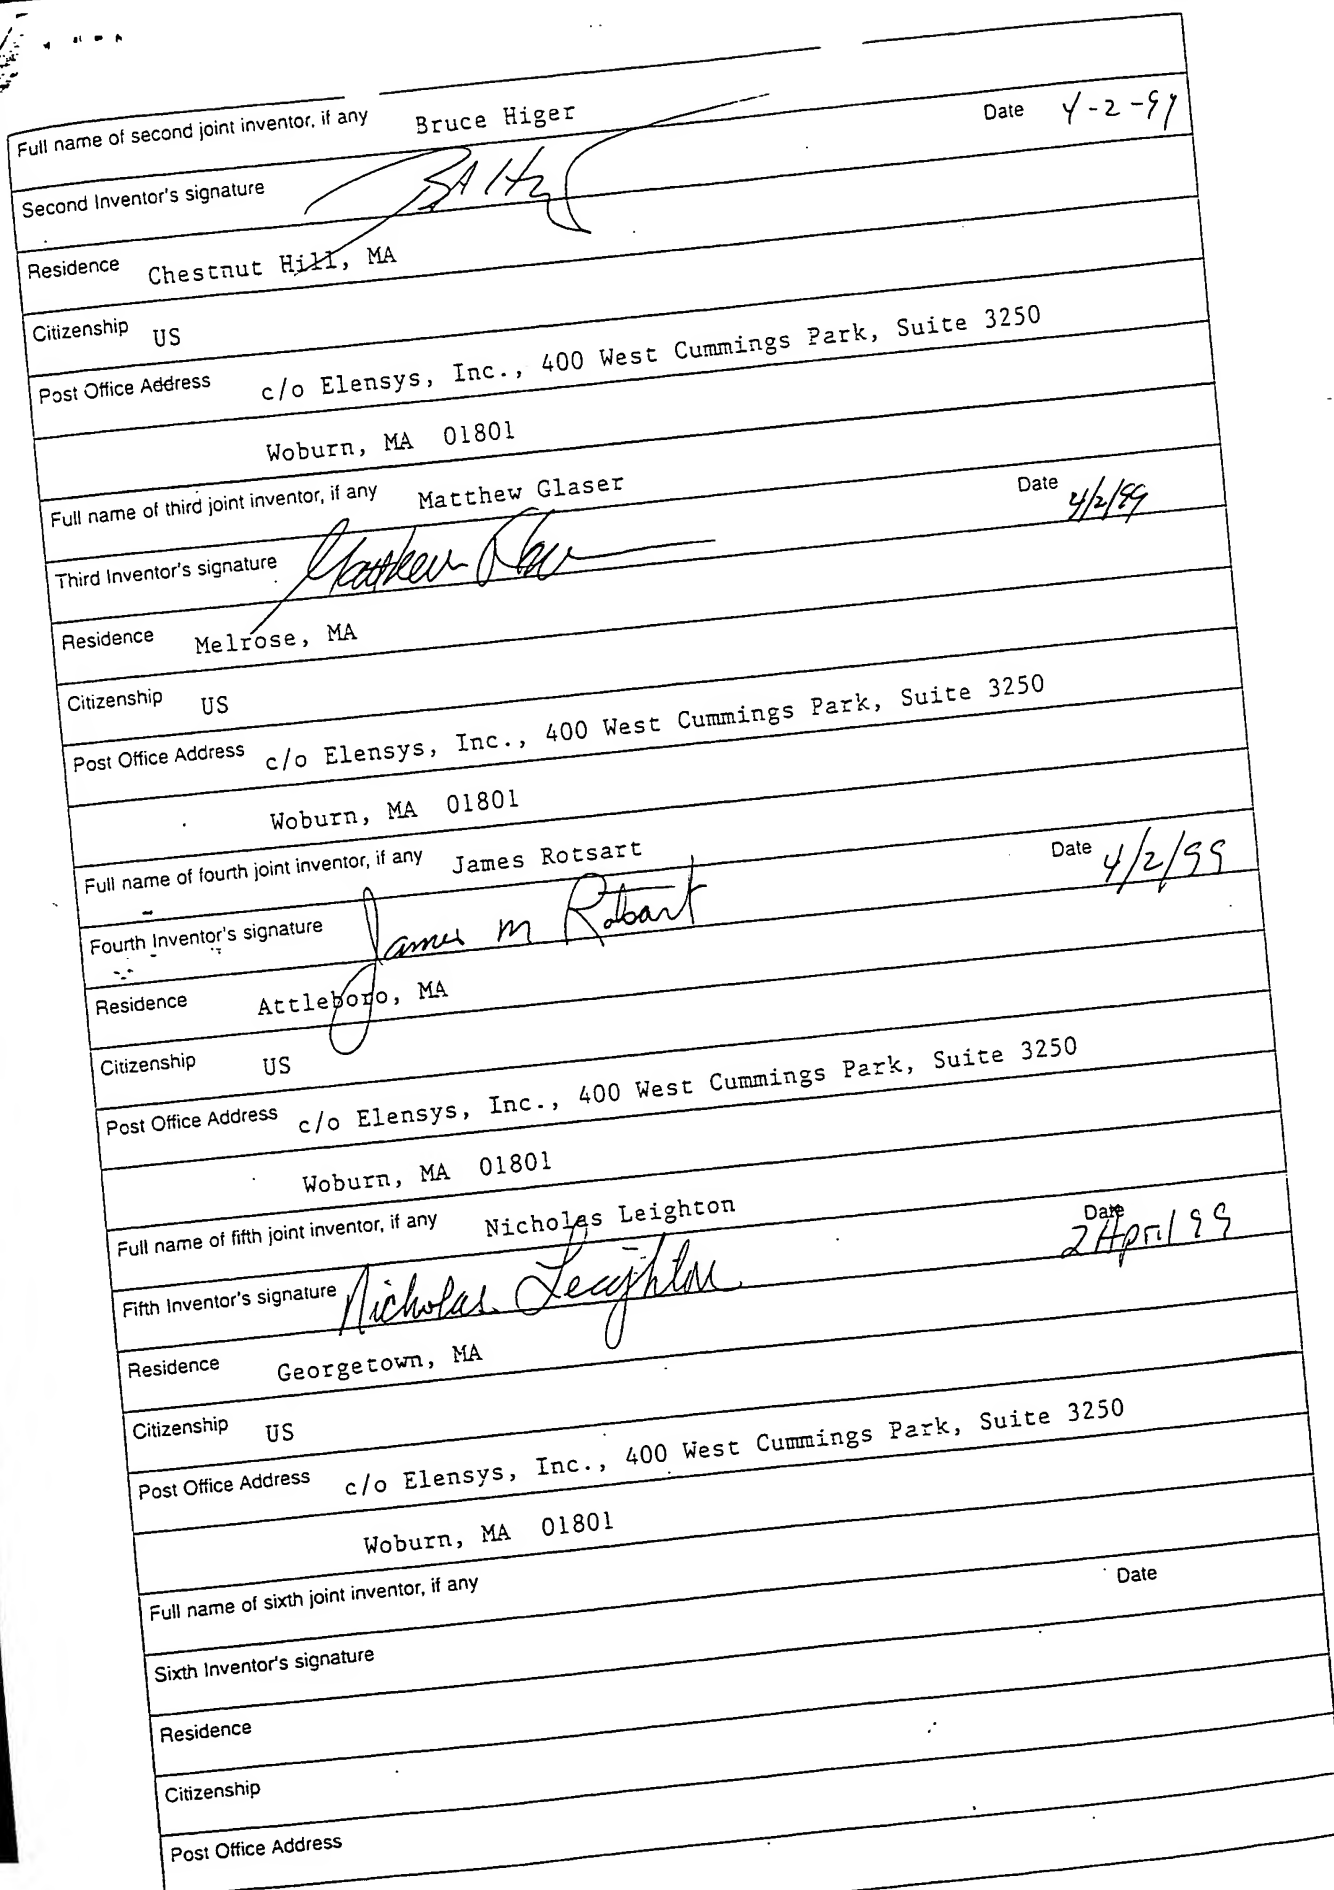 Full name of second joint inventor, if any Bruce Higer Date 4-2-99
Second Inventor's signature
Residence Chestnut Hill, MA
Citizenship US
Post Office Address c/o Elensys, Inc., 400 West Cummings Park, Suite 3250
Woburn, MA 01801
Full name of third joint inventor, if any Matthew Glaser Date 4/2/99
Third Inventor's signature Matthew
Residence Melrose, MA
Citizenship US
Post Office Address c/o Elensys, Inc., 400 West Cummings Park, Suite 3250
Woburn, MA 01801
Full name of fourth joint inventor, if any James Rotsart Date 4/2/99
Fourth Inventor's signature James M Rotsart
Residence Attleboro, MA
Citizenship US
Post Office Address c/o Elensys, Inc., 400 West Cummings Park, Suite 3250
Woburn, MA 01801
Full name of fifth joint inventor, if any Nicholas Leighton Date 2 April 99
Fifth Inventor's signature Nicholas Leighton
Residence Georgetown, MA
Citizenship US
Post Office Address c/o Elensys, Inc., 400 West Cummings Park, Suite 3250
Woburn, MA 01801
Full name of sixth joint inventor, if any Date
Sixth Inventor's signature
Residence
Citizenship
Post Office Address